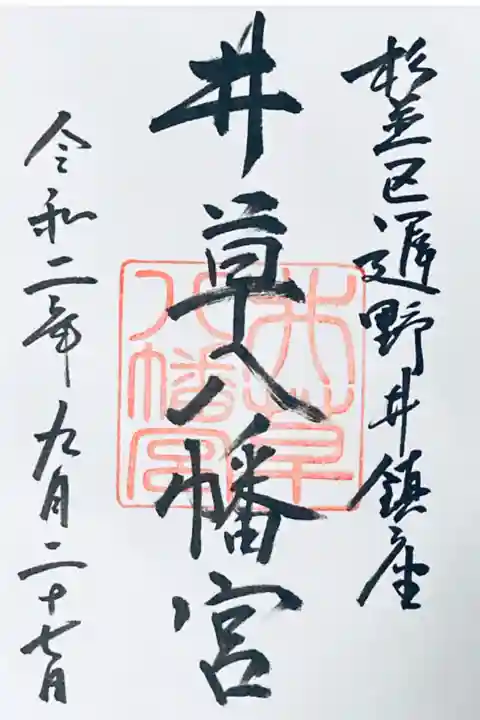 杉並区遅野井鎮座
井草八幡宮
井草
八幡宮
令和二年九月二十七日